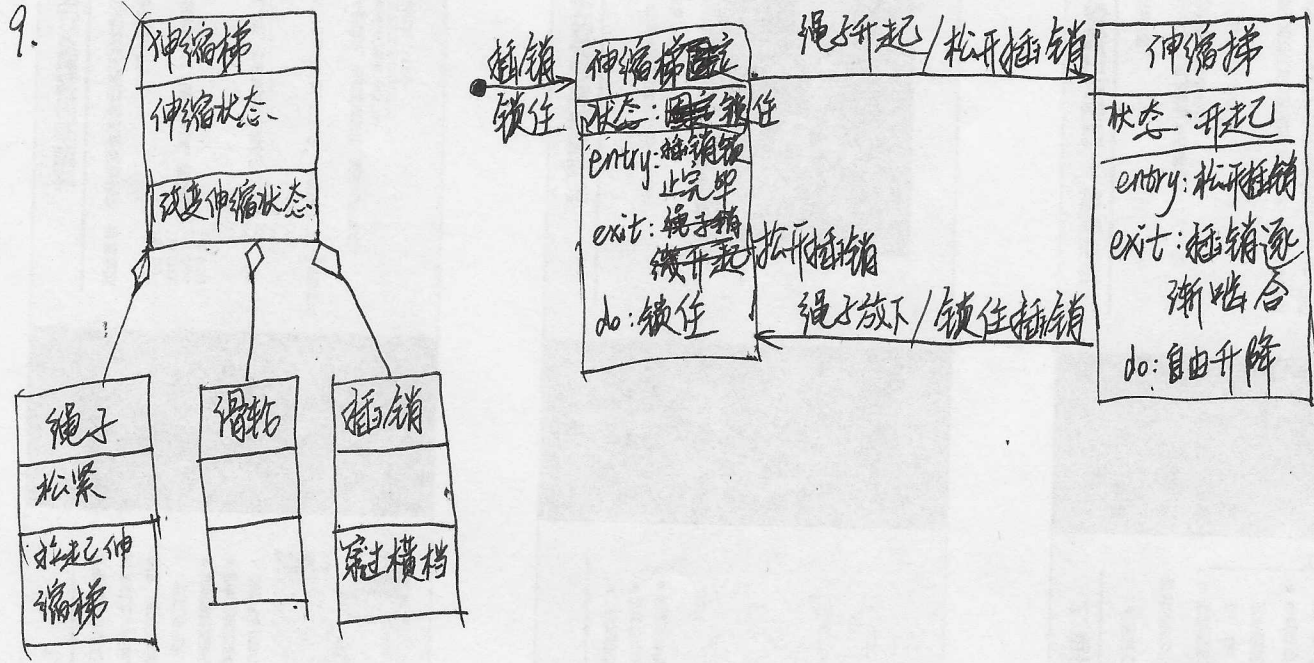 9.
伸缩梯
伸缩状态
改变伸缩状态
绳子
松紧
拉起伸
缩梯
滑轮
插销
穿过横档
插销
锁住
伸缩梯
状态:锁住
entry:插销锁
止完毕
exit:
松开插销
do:锁住
绳子升起/松开插销
绳子放下/锁住插销
伸缩梯
状态:升起
entry:松开插销
exit:插销逐
渐啮合
do:自由升降